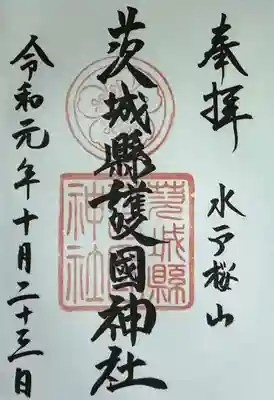 奉拝
水戸桜山
茨城縣護國神社
茨城縣
護國
神社
令和元年十月二十三日